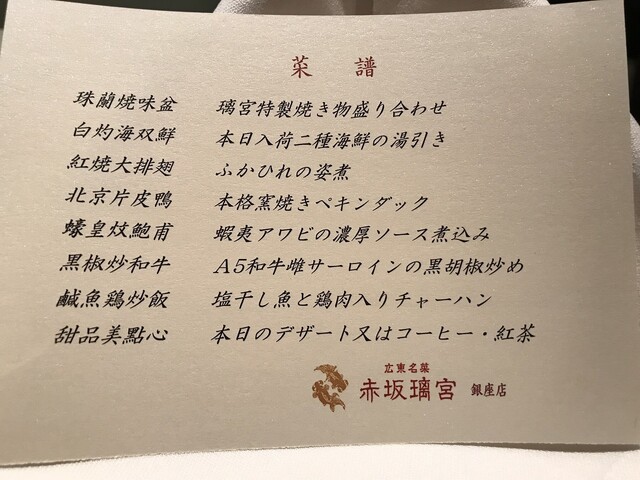 菜譜
珠蘭焼味盆 璃宮特製焼き物盛り合わせ
白灼海双鮮 本日入荷二種海鮮の湯引き
紅焼大排翅 ふかひれの姿煮
北京片皮鴨 本格窯焼きペキンダック
蠔皇炆鮑甫 蝦夷アワビの濃厚ソース煮込み
黒椒炒和牛 A5和牛雌サーロインの黒胡椒炒め
鹹魚鶏炒飯 塩干し魚と鶏肉入りチャーハン
甜品美點心 本日のデザート又はコーヒー・紅茶
広東名菜
赤坂璃宮 銀座店